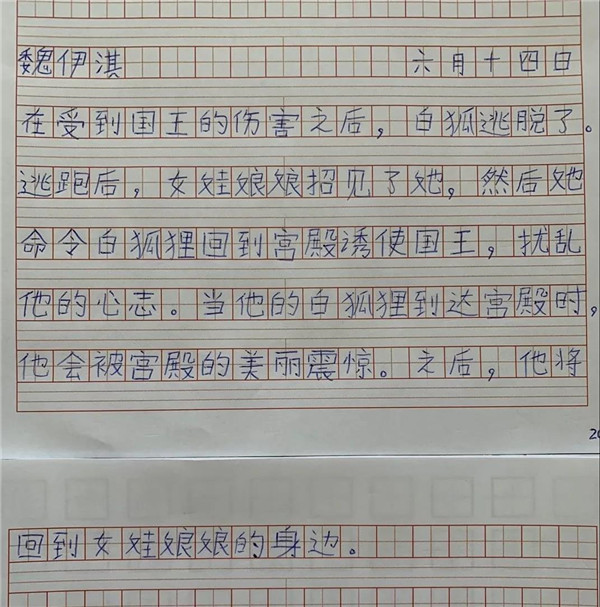 魏伊淇 六月十四日
在受到国王的伤害之后，白狐逃脱了。
逃跑后，女娃娘娘招见了她，然后她
命令白狐狸回到宫殿诱使国王，扰乱
他的心志。当他的白狐狸到达宫殿时，
他会被宫殿的美丽震惊。之后，他将
20
回到女娃娘娘的身边。